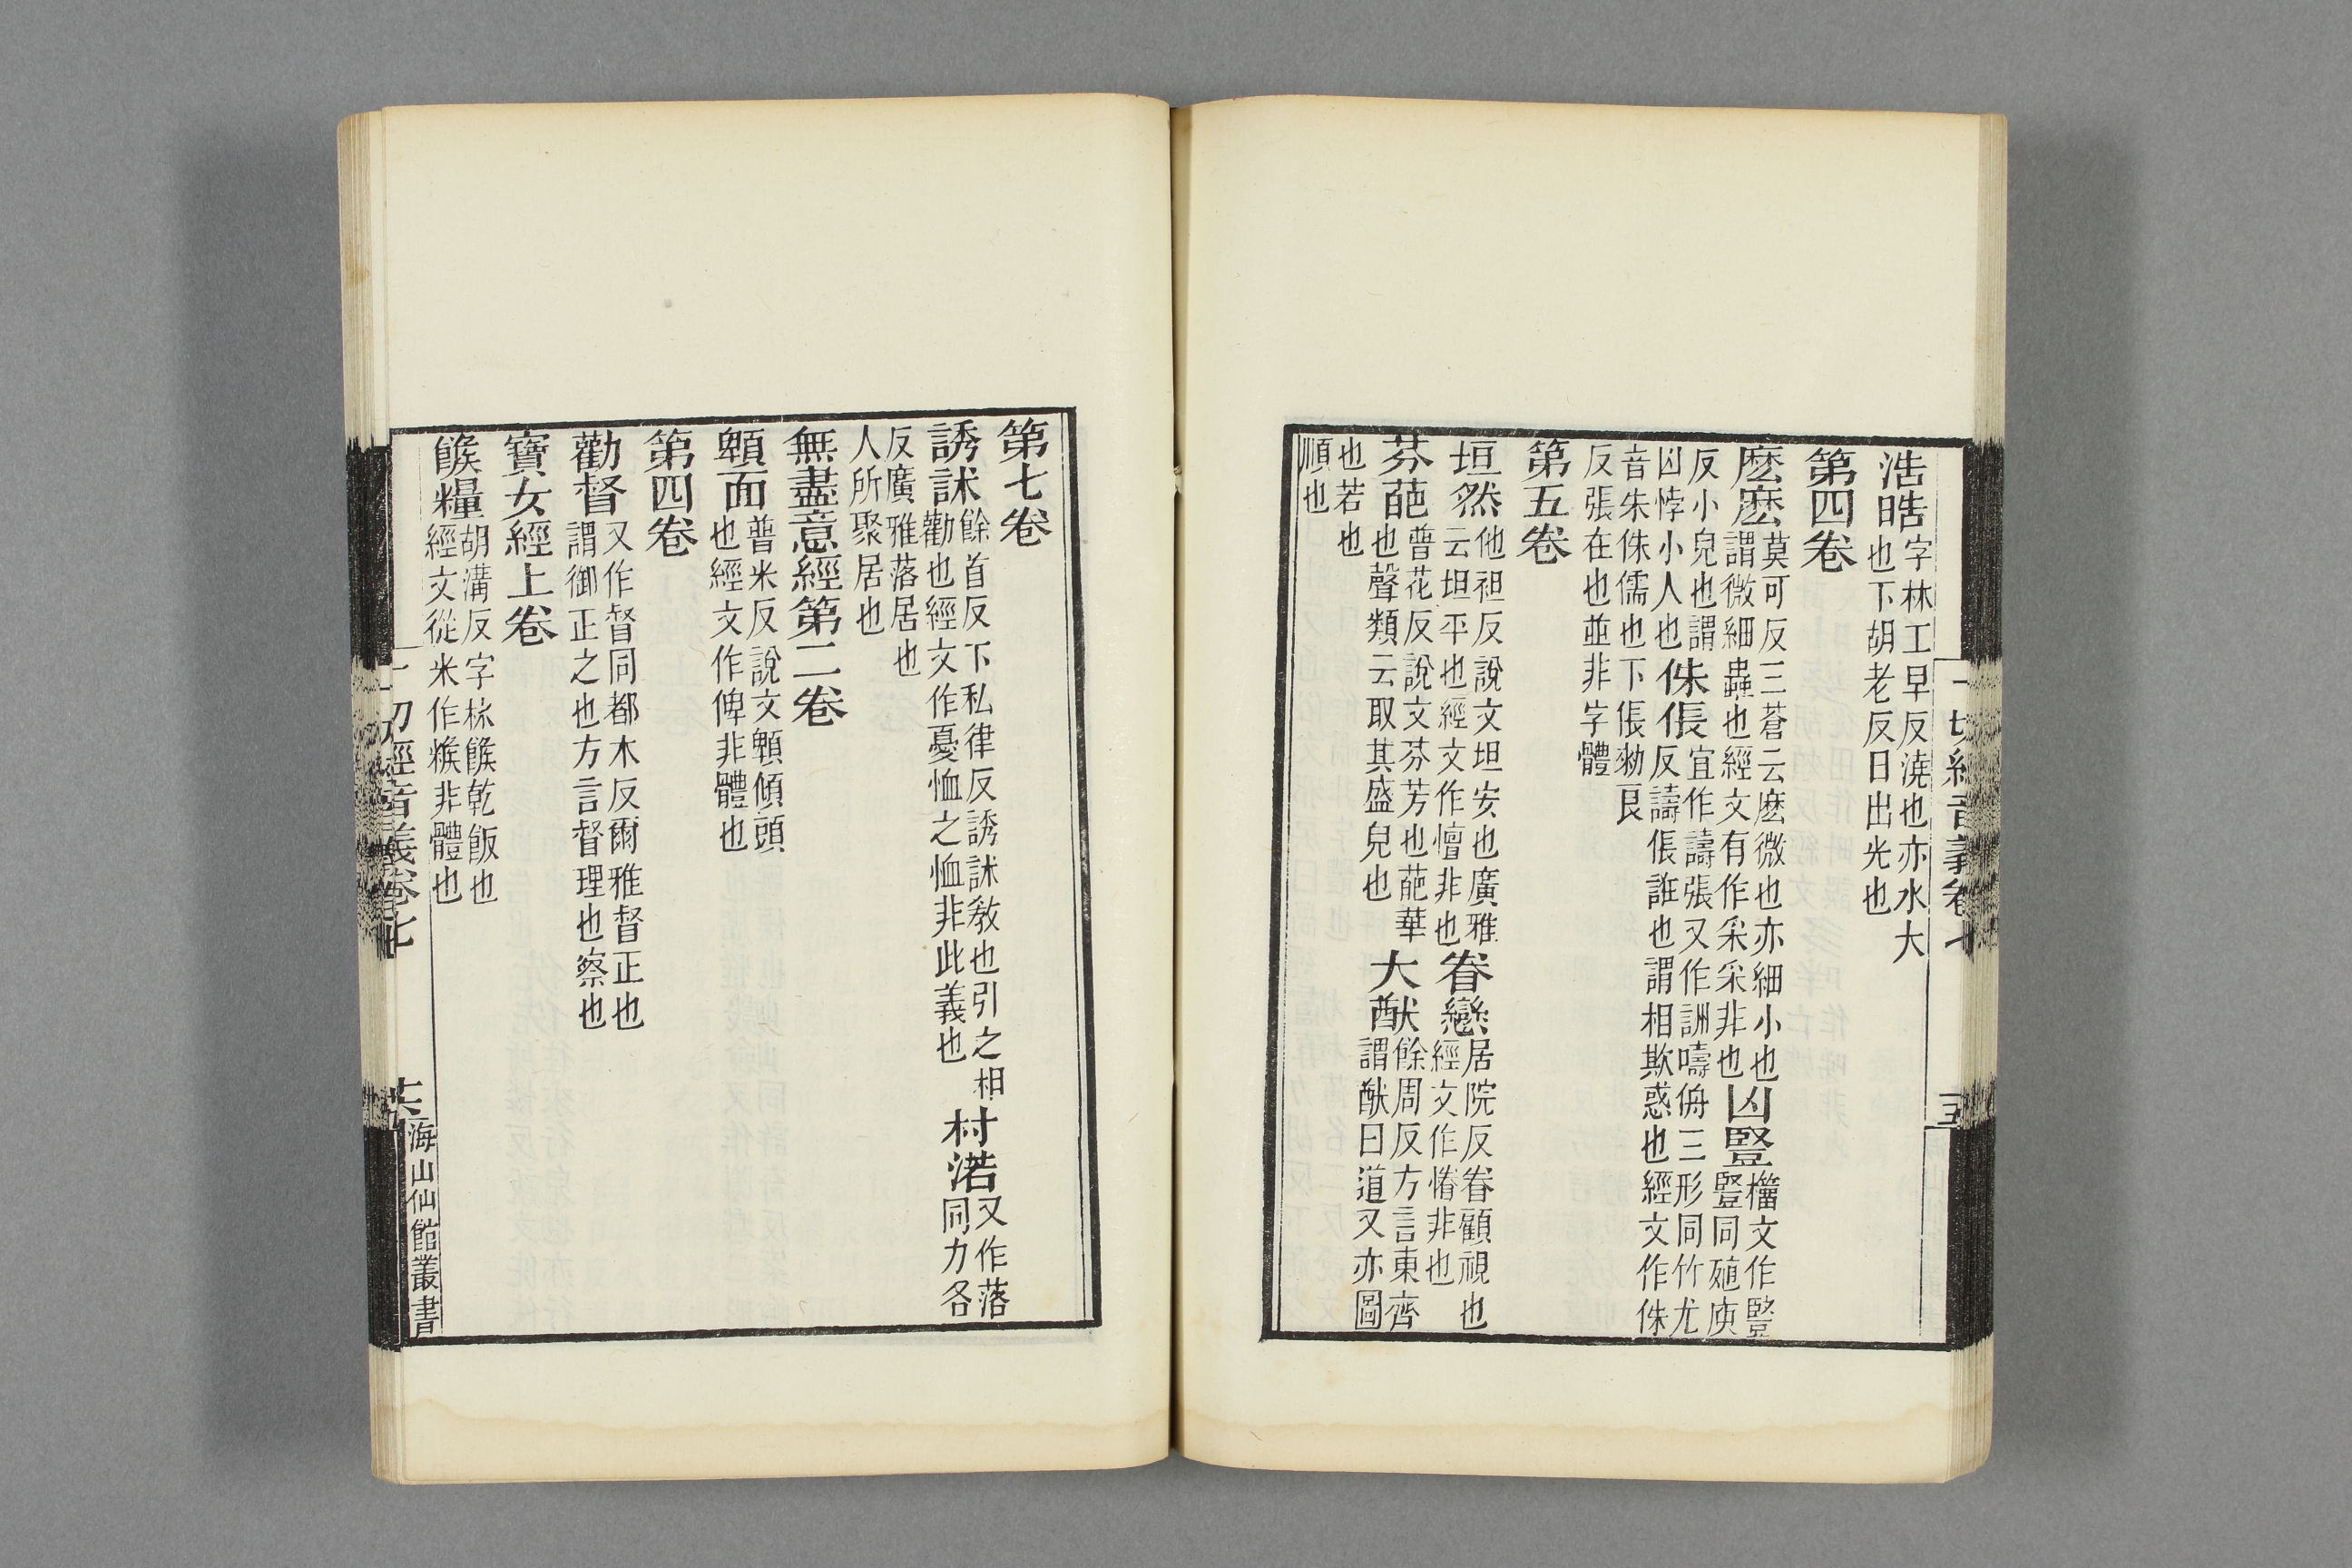 浩晧字林工早反澆也亦水大
也下胡老反日出光也
第四卷
麽麽莫可反三蒼云麽微也亦細小也
謂微細蟲也經文有作釆釆非也
凶豎
籀文作豎
豎同殖庾
反小皃也謂
凶悖小人也
侏倀
宜作譸張又作詶嚋侜三形同竹尤
反譸倀誑也謂相欺惑也經文作侏
音朱侏儒也下倀勑良
反張在也並非字體
第五卷
坦然他袒反說文坦安也廣雅
云坦平也經文作憻非也
眷戀
居院反眷顧視也
經文作惓非也
芬葩
普花反說文芬芳也葩華
也聲類云取其盛皃也
大猷
餘周反方言東齊
謂猷曰道又亦圖
也若也
順也
一切經音義卷七
第七卷
誘訹餘首反下私律反誘訹敎也引之相
勸也經文作憂恤之恤非此義也
村㳓
又作落
同力各
反廣雅落居也
人所聚居也
無盡意經第二卷
頓面普米反說文頓傾頭
也經文作俾非體也
第四卷
勸督又作督同都木反爾雅督正也
謂御正之也方言督理也察也
寶女經上卷
餱糧胡溝反字林餱乾飯也
經文從米作糇非體也
一切經音義卷七
海山仙館叢書